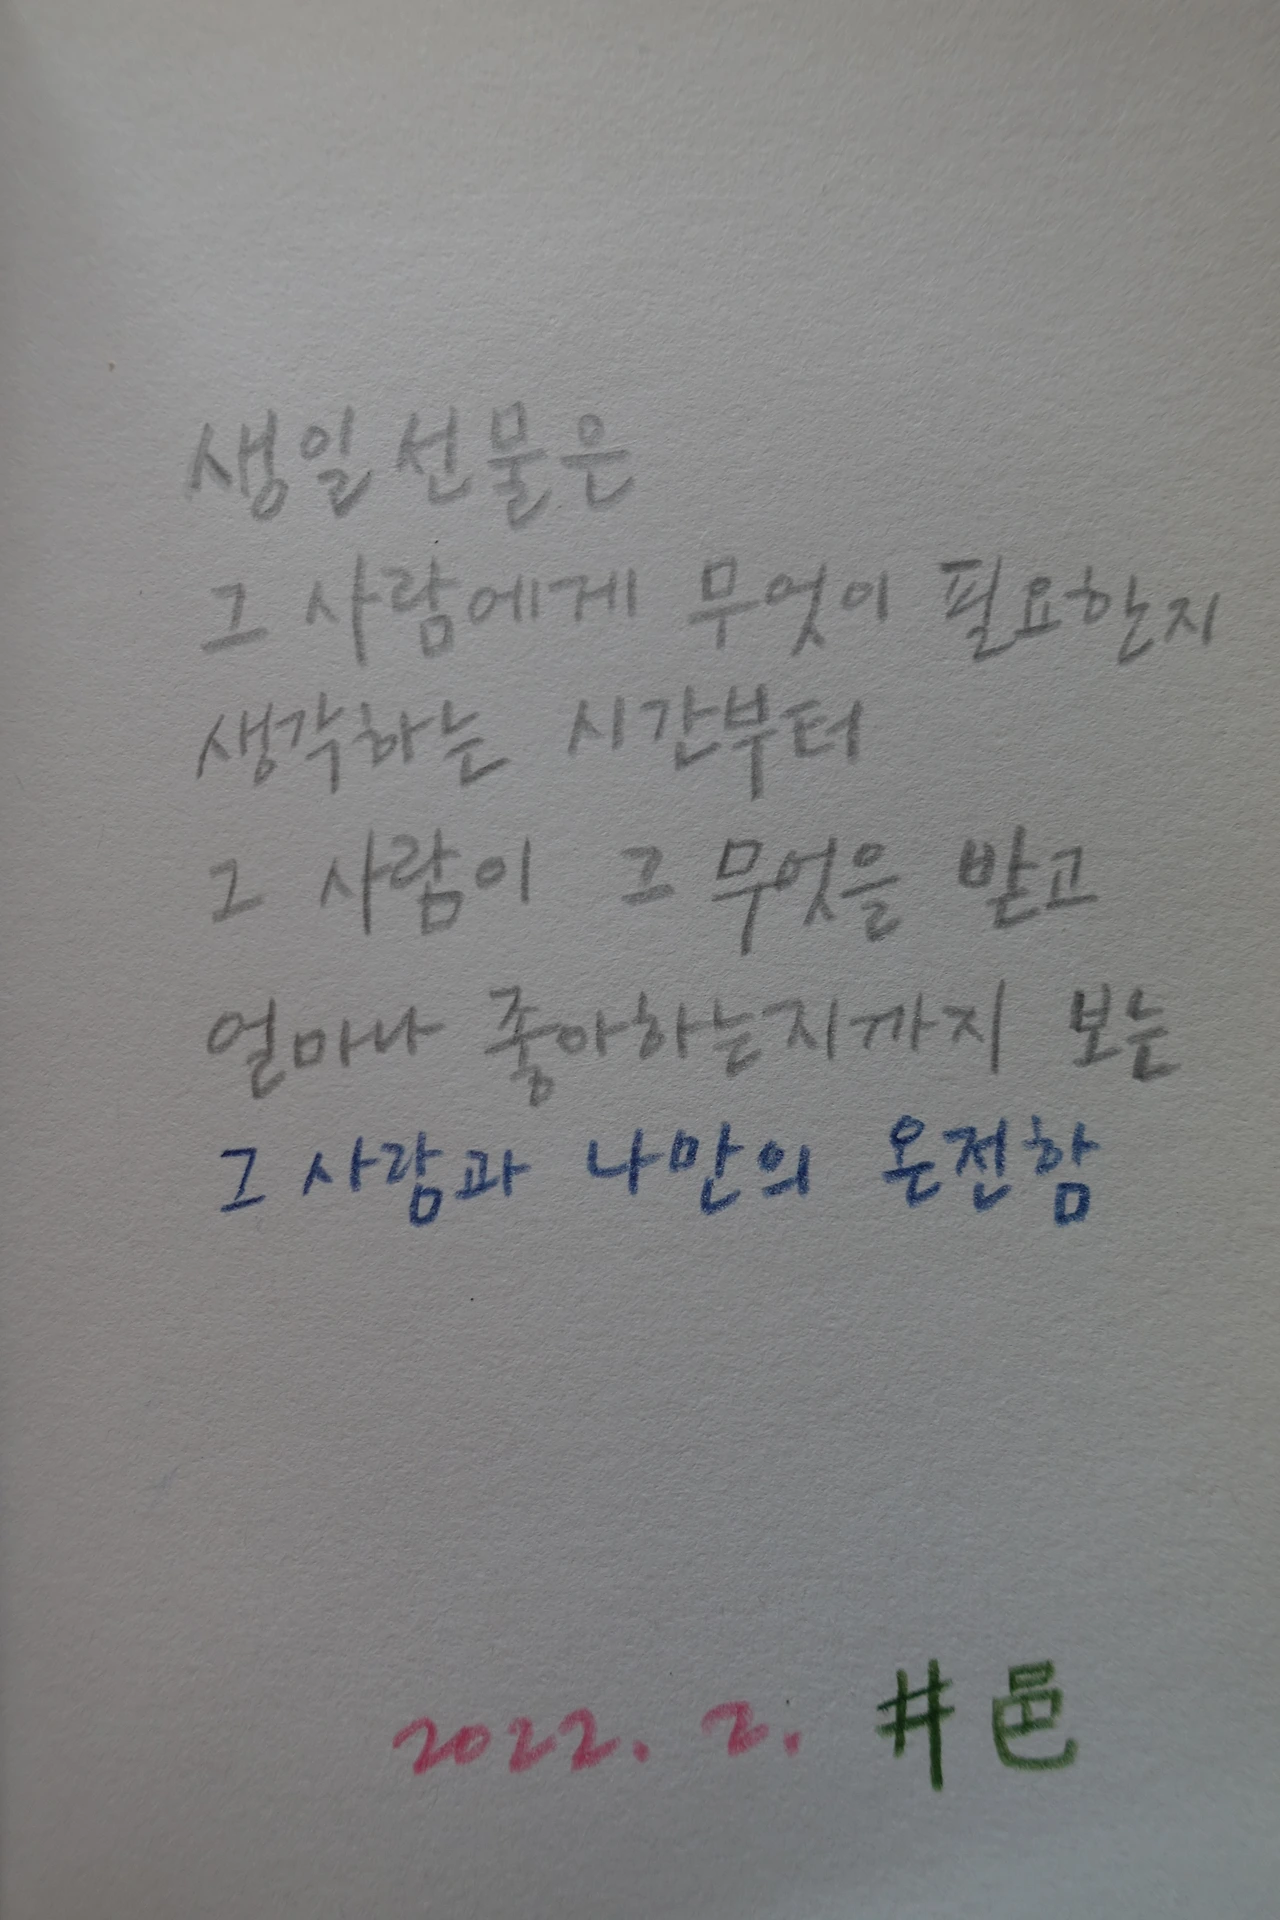 생일 선물은
그 사람에게 무엇이 필요한지
생각하는 시간부터
그 사람이 그 무엇을 받고
얼마나 좋아하는지까지 보는
그 사람과 나만의 온전함
2022. 2. 井邑